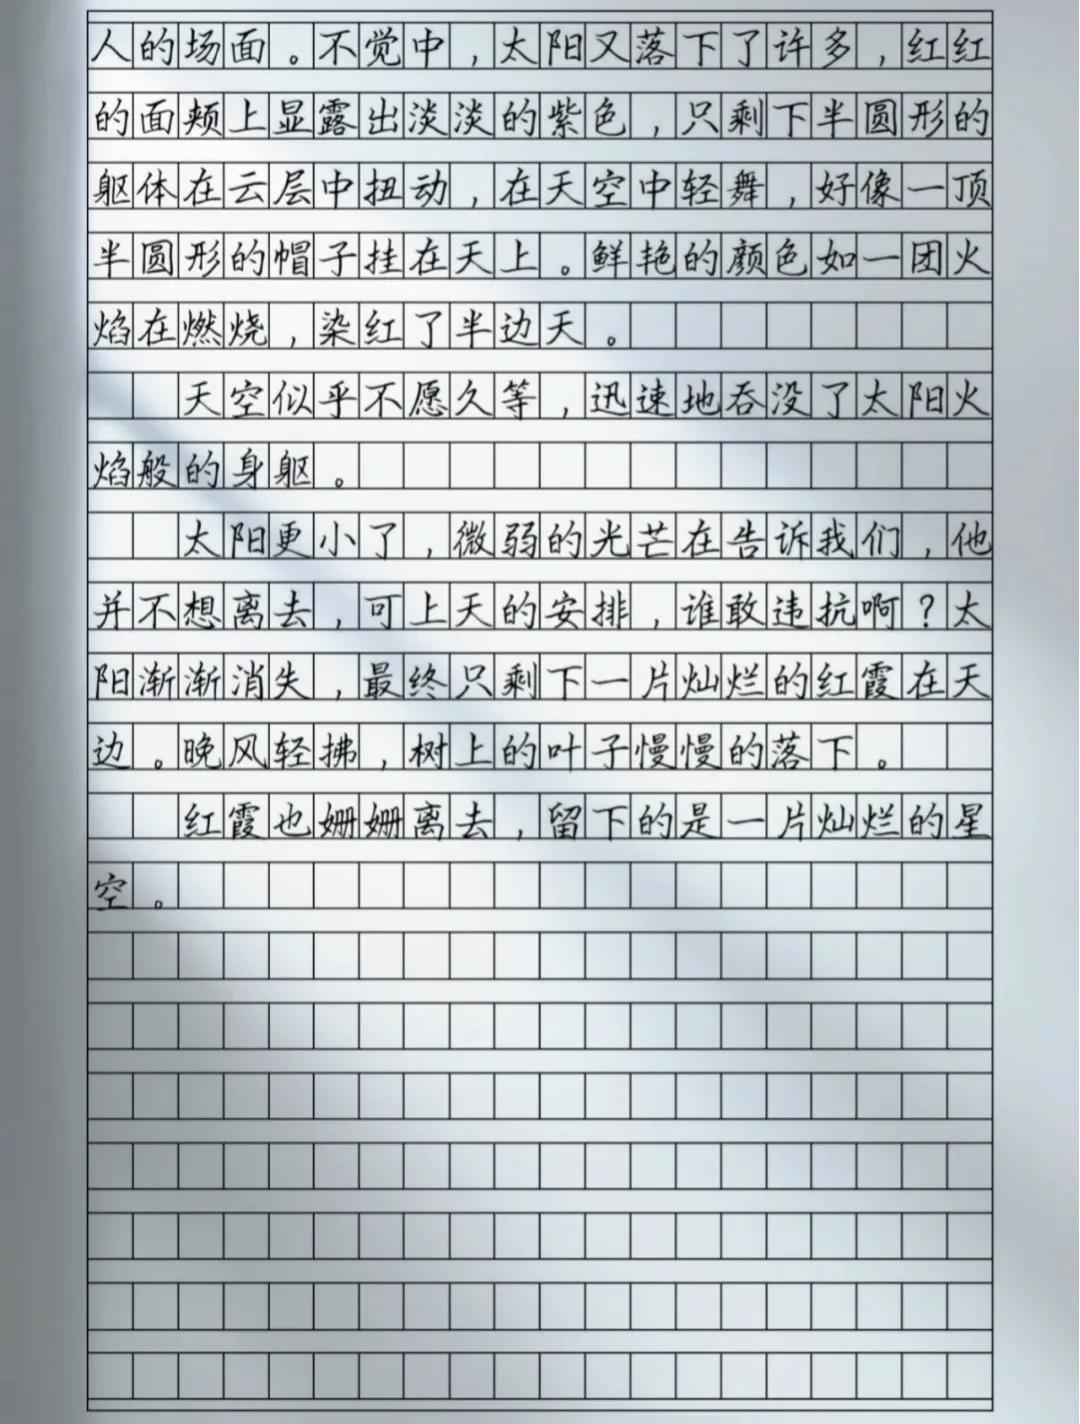 人的场面。不觉中，太阳又落下了许多，红红
的面颊上显露出淡淡的紫色，只剩下半圆形的
躯体在云层中扭动，在天空中轻舞，好像一顶
半圆形的帽子挂在天上。鲜艳的颜色如一团火
焰在燃烧，染红了半边天。
天空似乎不愿久等，迅速地吞没了太阳火
焰般的身躯。
太阳更小了，微弱的光芒在告诉我们，他
并不想离去，可上天的安排，谁敢违抗啊？太
阳渐渐消失，最终只剩下一片灿烂的红霞在天
边。晚风轻拂，树上的叶子慢慢的落下。
红霞也姗姗离去，留下的是一片灿烂的星
空。